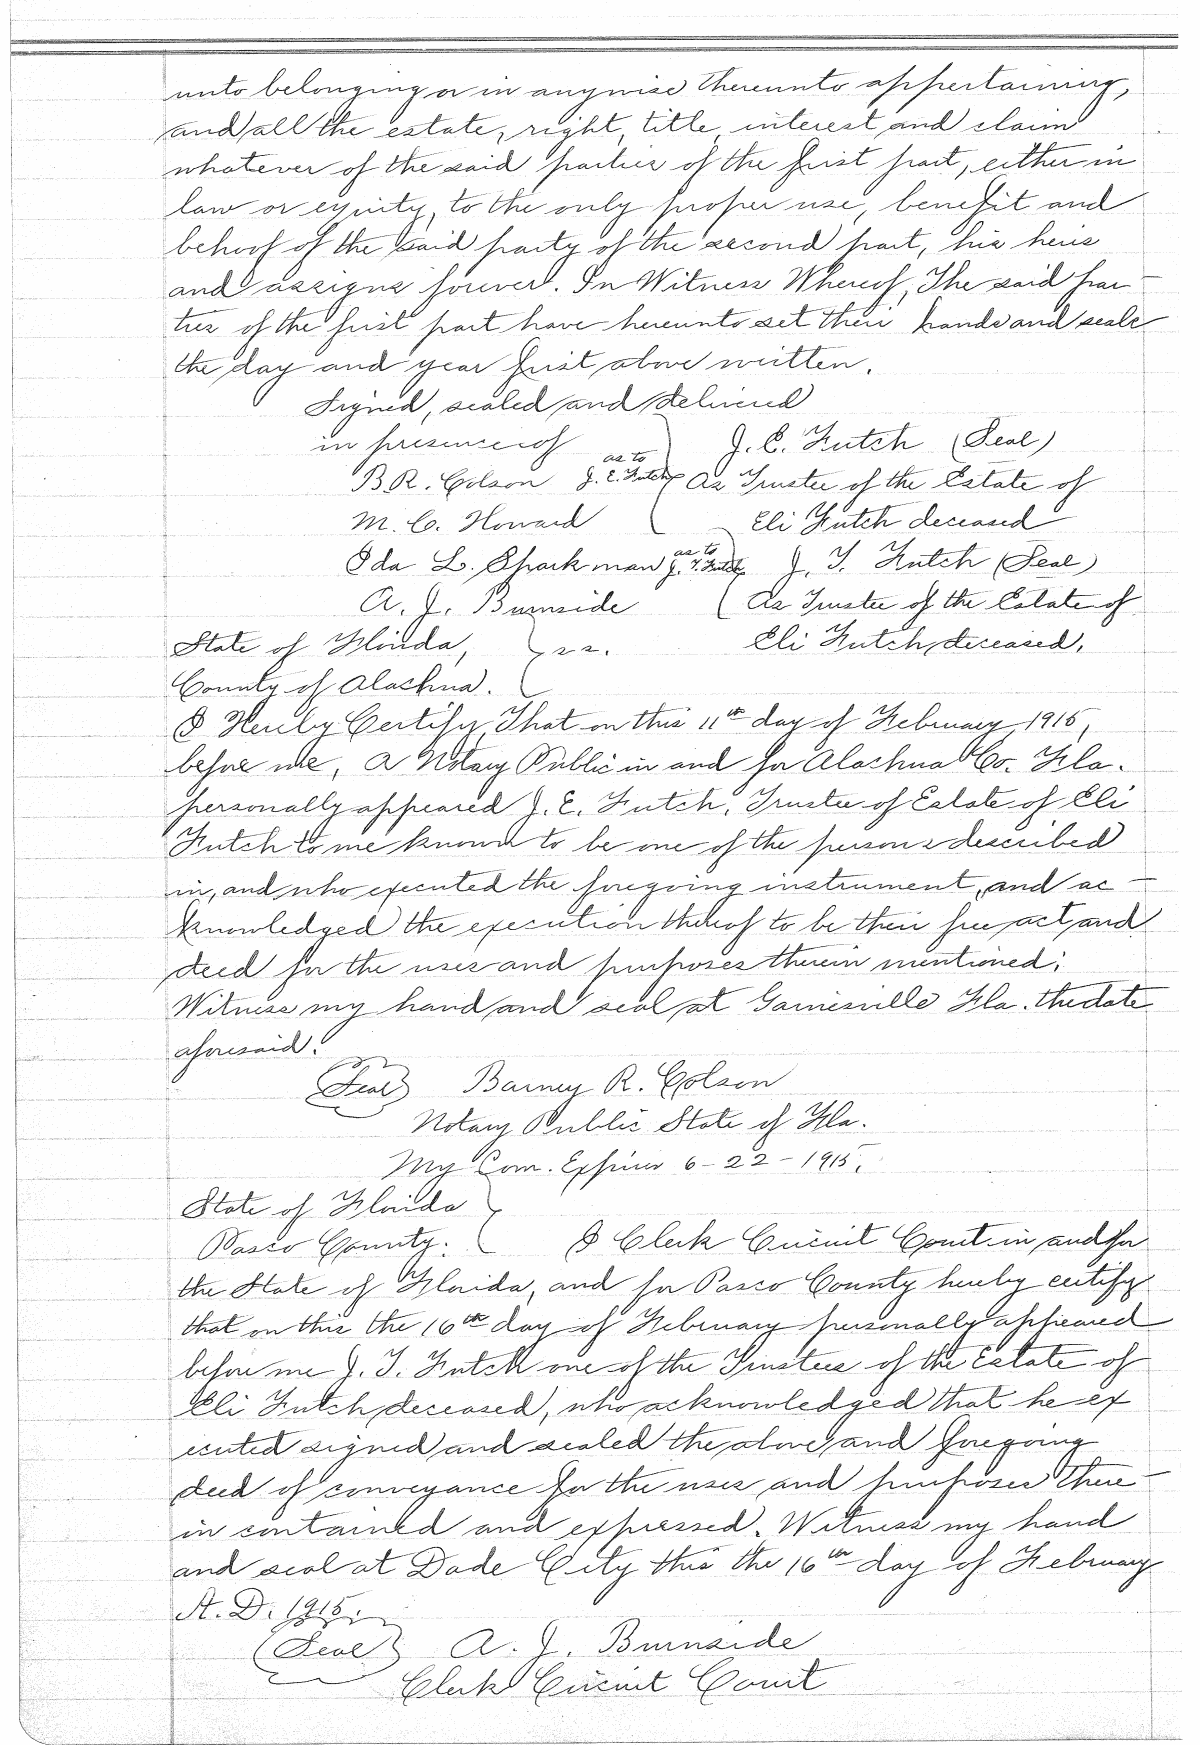 unto belonging or in anywise thereunto appertaining,
and all the estate, right, title, interest and claim
whatever of the said parties of the first part, either in
law or equity, to the only proper use, benefit and
behoof of the said party of the second part, his heirs
and assigns forever. In Witness Whereof, The said par-
ties of the first part have hereunto set their hands and seals
the day and year first above written.
Signed, sealed and delivered
in presence of
J. E. Futch (Seal)
B.R. Colson as to J. E. Futch
As Trustee of the Estate of
M. C. Howard
Eli Futch deceased
Ida L. Sparkman as to J. T. Futch
J. T. Futch (Seal)
A. J. Burnside
As Trustee of the Estate of
State of Florida, } s.s.
Eli Futch, deceased.
County of Alachua.
I Hereby Certify, That on this 11th day of February, 1915,
before me, A Notary Public in and for Alachua Co. Fla.
personally appeared J. E. Futch, Trustee of Estate of Eli
Futch to me known to be one of the persons described
in, and who executed the foregoing instrument, and ac-
knowledged the execution thereof to be their free act and
deed for the uses and purposes therein mentioned;
Witness my hand and seal at Gainesville Fla. the date
aforesaid.
(Seal) Barney R. Colson
Notary Public State of Fla.
My Com. Expires 6-22-1915.
State of Florida
Pasco County. I Clerk Circuit Court in and for
the State of Florida, and for Pasco County hereby certify
that on this the 16th day of February personally appeared
before me J. T. Futch one of the Trustees of the Estate of
Eli Futch, deceased, who acknowledged that he ex
ecuted signed and sealed the above and foregoing
deed of conveyance for the uses and purposes there-
in contained and expressed. Witness my hand
and seal at Dade City this the 16th day of February
A. D. 1915.
(Seal) A. J. Burnside
Clerk Circuit Court